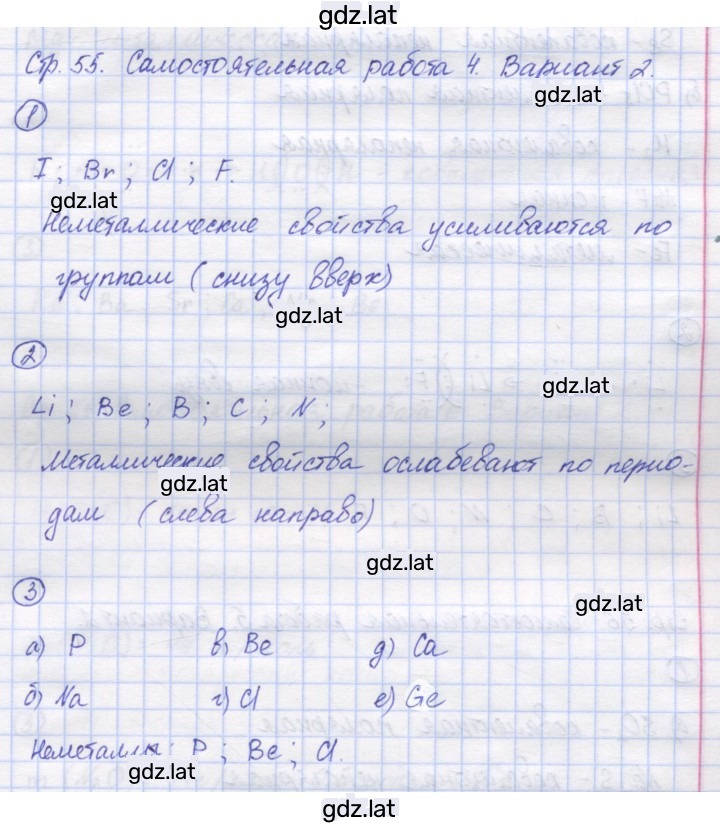 gdz.lat
Стр. 55. Самостоятельная работа 4. Вариант 2.
gdz.lat
1
I; Br; Cl; F.
gdz.lat
Неметаллические свойства усиливаются по
группам (снизу вверх)
gdz.lat
2
gdz.lat
Li; Be; B; C; N;
Металлические свойства ослабевают по перио-
gdz.lat
дам (слева направо)
gdz.lat
3
gdz.lat
а) P в) Be д) Ca
б) Na г) Cl е) Ge
Неметаллы: P; Be; Cl.
gdz.lat
gdz.lat